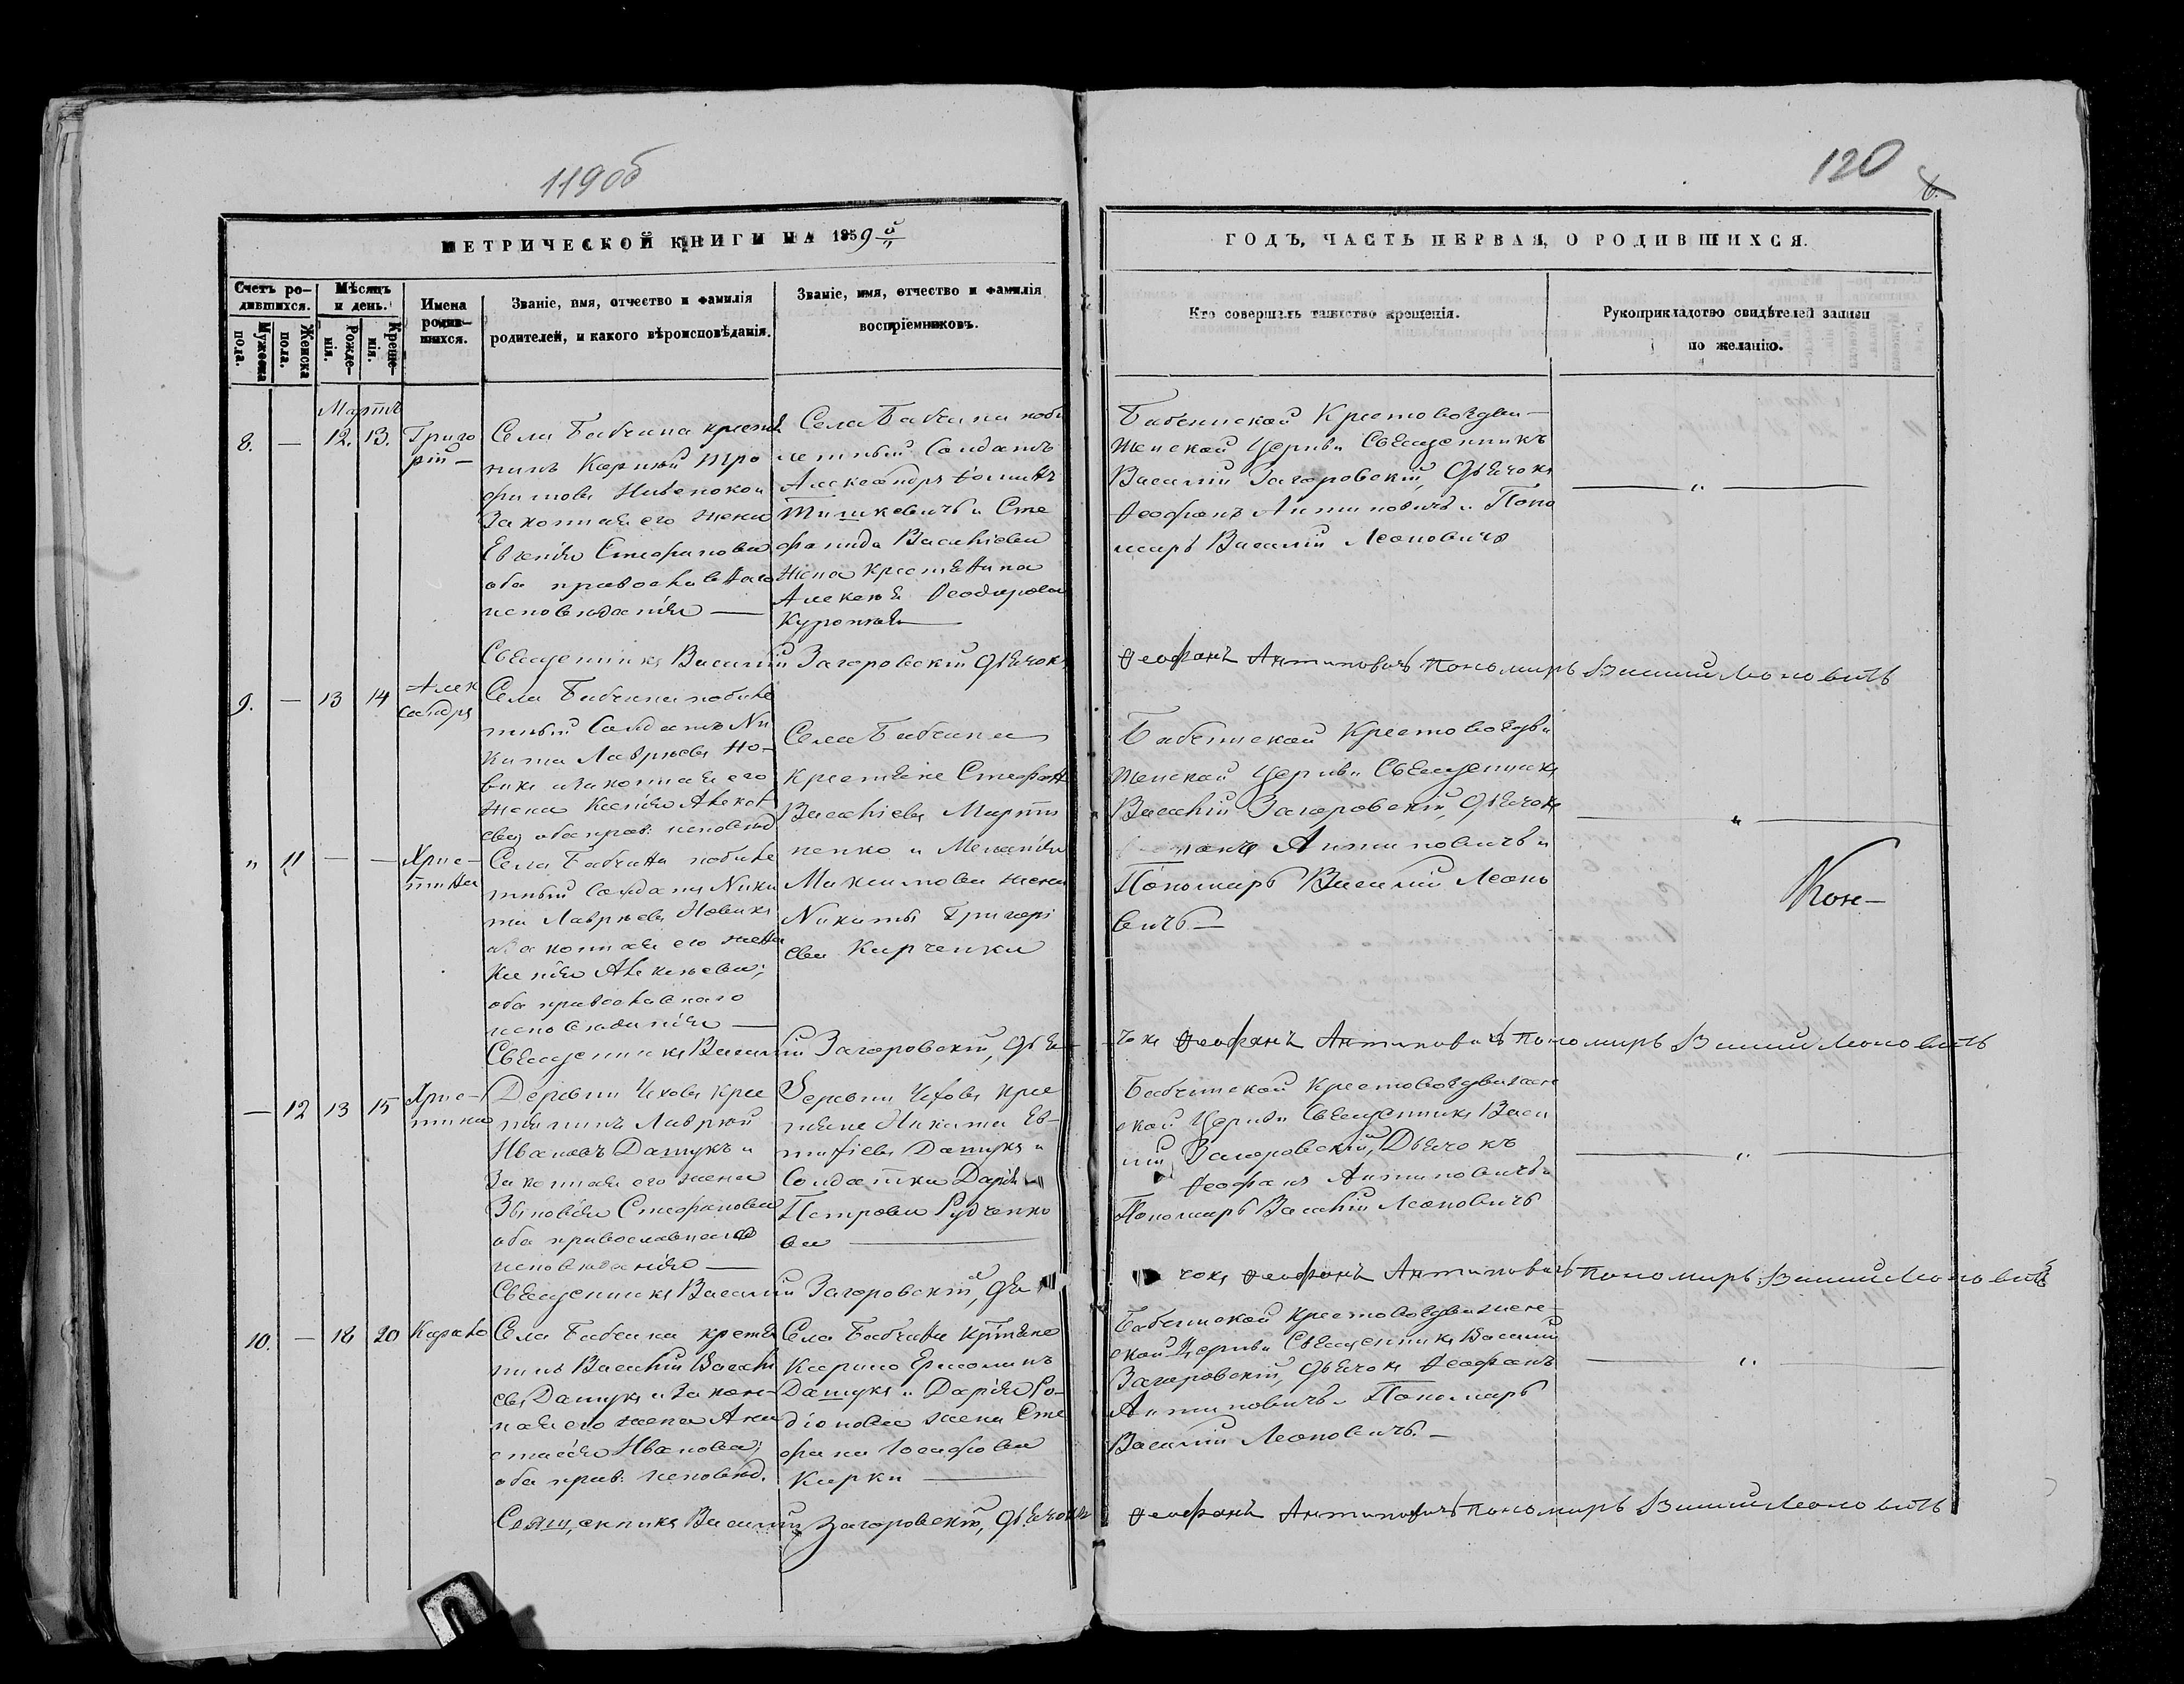 119об
120
МЕТРИЧЕСКОЙ КНИГИ НА 1859й
ГОДЪ, ЧАСТЬ ПЕРВАЯ, О РОДИВШИХСЯ.
Счетъ ро-
дившихся.
Мужеска
пола.
Женска
пола.
Мѣсяцъ
и день.
Рожде-
нія.
Креще-
нія.
Имена
родив-
шихся.
Званіе, имя, отчество и фамилія
родителей, и какого вѣроисповѣданія.
Званіе, имя, отчество и фамилія
воспріемниковъ.
Кто совершалъ таинство крещенія.
Рукоприкладство свидѣтелей записи
по желанію.
Мартъ
8. — 12. 13.
Григо
рій —
Села Бабчина крестья
нинъ Карпій Тро
фимовъ
Законная его жена
Евгенія Стефанова
оба православнаго
исповѣданія —
Села Бабчина
Солдатъ
Александръ Ѳоминъ
Тишкевичъ и Сте
фанида Васильева
жена крестьянина
Алексѣя Ѳеодорова
Бабчинской Крестовоздви-
женской Церкви Священникъ
Василій Загоровскій, Дьячокъ
Ѳеофанъ Антиповичъ и Поно
марь Василій Леоновичъ
Священникъ Василій Загоровскій Дьячокъ
Ѳеофанъ Антиповичъ Пономарь Василій Леоновичъ
9. — 13 14
Алек
сандръ
Села Бабчина
Солдатъ Ни
кита Лаврѣевъ Но-
викъ и законная его
жена Ксенія Алексѣ
ева, оба прав: исповѣд
Села Бабчина
крестьяне Стефанъ
Васильевъ Марти
ненко и Меланія
Максимова жена
Никиты Григорі
ева Кирченки
Бабчинской Крестовоздви
женской Церкви Священникъ
Василій Загоровскій, Дьячокъ
Антиповичъ и
Пономарь Василій Леоно
вичъ —
" 11 — —
Хрис-
тина
Села Бабчина
Солдатъ Ники
та Лаврѣевъ Новикъ
и законная его жена
Ксенія Алексѣева;
оба православнаго
исповѣданія —
Священникъ Василій Загоровскій, Дья-
чокъ Ѳеофанъ Антиповичъ Пономарь Василій Леоновичъ
— 12 13 15
Хрис-
тина
Деревни Чехова крес
тянинъ Лаврѣй
Ивановъ Дашукъ и
Законная его жена
Зѣновія Стефанова
оба православнаго
исповѣданія —
Деревни Чехова крес
тяне Никита Ев-
Дашукъ и
Солдатка Дарія
Петрова Рудченко
ва
Бабчинской Крестовоздвиженс
кой Церкви Священникъ Васи
лій Загоровскій, Дьячокъ
Ѳеофанъ Антиповичъ и
Пономарь Василій Леоновичъ
Священникъ Василій Загоровскій, Дья
чокъ Ѳеофанъ Антиповичъ Пономарь Василій Леоновичъ
10. — 18 20
Села Бабчина крестья
нинъ Василій Василь
евъ Дашукъ и закон-
ная его жена Ана
стасія Иванова;
оба прав: исповѣд.
Села Бабчина крестяне
Дашукъ и Дарія Ро-
діонова жена Сте
фана Іосифова
Кирки —
Бабчинской Крестовоздвиженс-
кой Церкви Священникъ Василій
Загоровскій, Дьячокъ Ѳеофанъ
Антиповичъ и Пономарь
Василій Леоновичъ —
Священникъ Василій Загоровскій, Дьячокъ
Ѳеофанъ Антиповичъ Пономарь Василій Леоновичъ